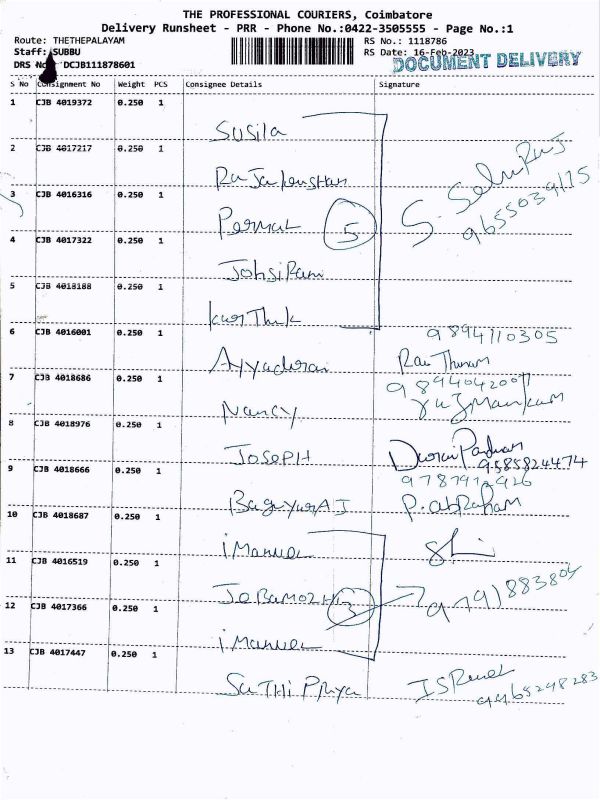 THE PROFESSIONAL COURIERS, Coimbatore
Delivery Runsheet - PRR - Phone No.:0422-3505555 - Page No.:1
Route: THETHEPALAYAM
RS No.: 1118786
Staff: SUBBU
RS Date: 16-Feb-2023
DRS No.: DCJB111878601
DOCUMENT DELIVERY
S No Consignment No Weight PCS Consignee Details Signature
1 CJB 4019372 0.250 1
Susila
2 CJB 4017217 0.250 1
S. Selvi Raj
9655039175
3 CJB 4016316 0.250 1
Permal 5
4 CJB 4017322 0.250 1
Johsi Rani
5 CJB 4018188 0.250 1
karThik
6 CJB 4016001 0.250 1
9894110305
Ayyadurai
7 CJB 4018686 0.250 1
9894042007
Nancy
8 CJB 4018976 0.250 1
JOSEPH
9585824474
9 CJB 4018666 0.250 1
P. abRaham
10 CJB 4018687 0.250 1
iManuel
11 CJB 4016519 0.250 1
3
12 CJB 4017366 0.250 1
iManuel
13 CJB 4017447 0.250 1
SaTHi PRiya
9465248283